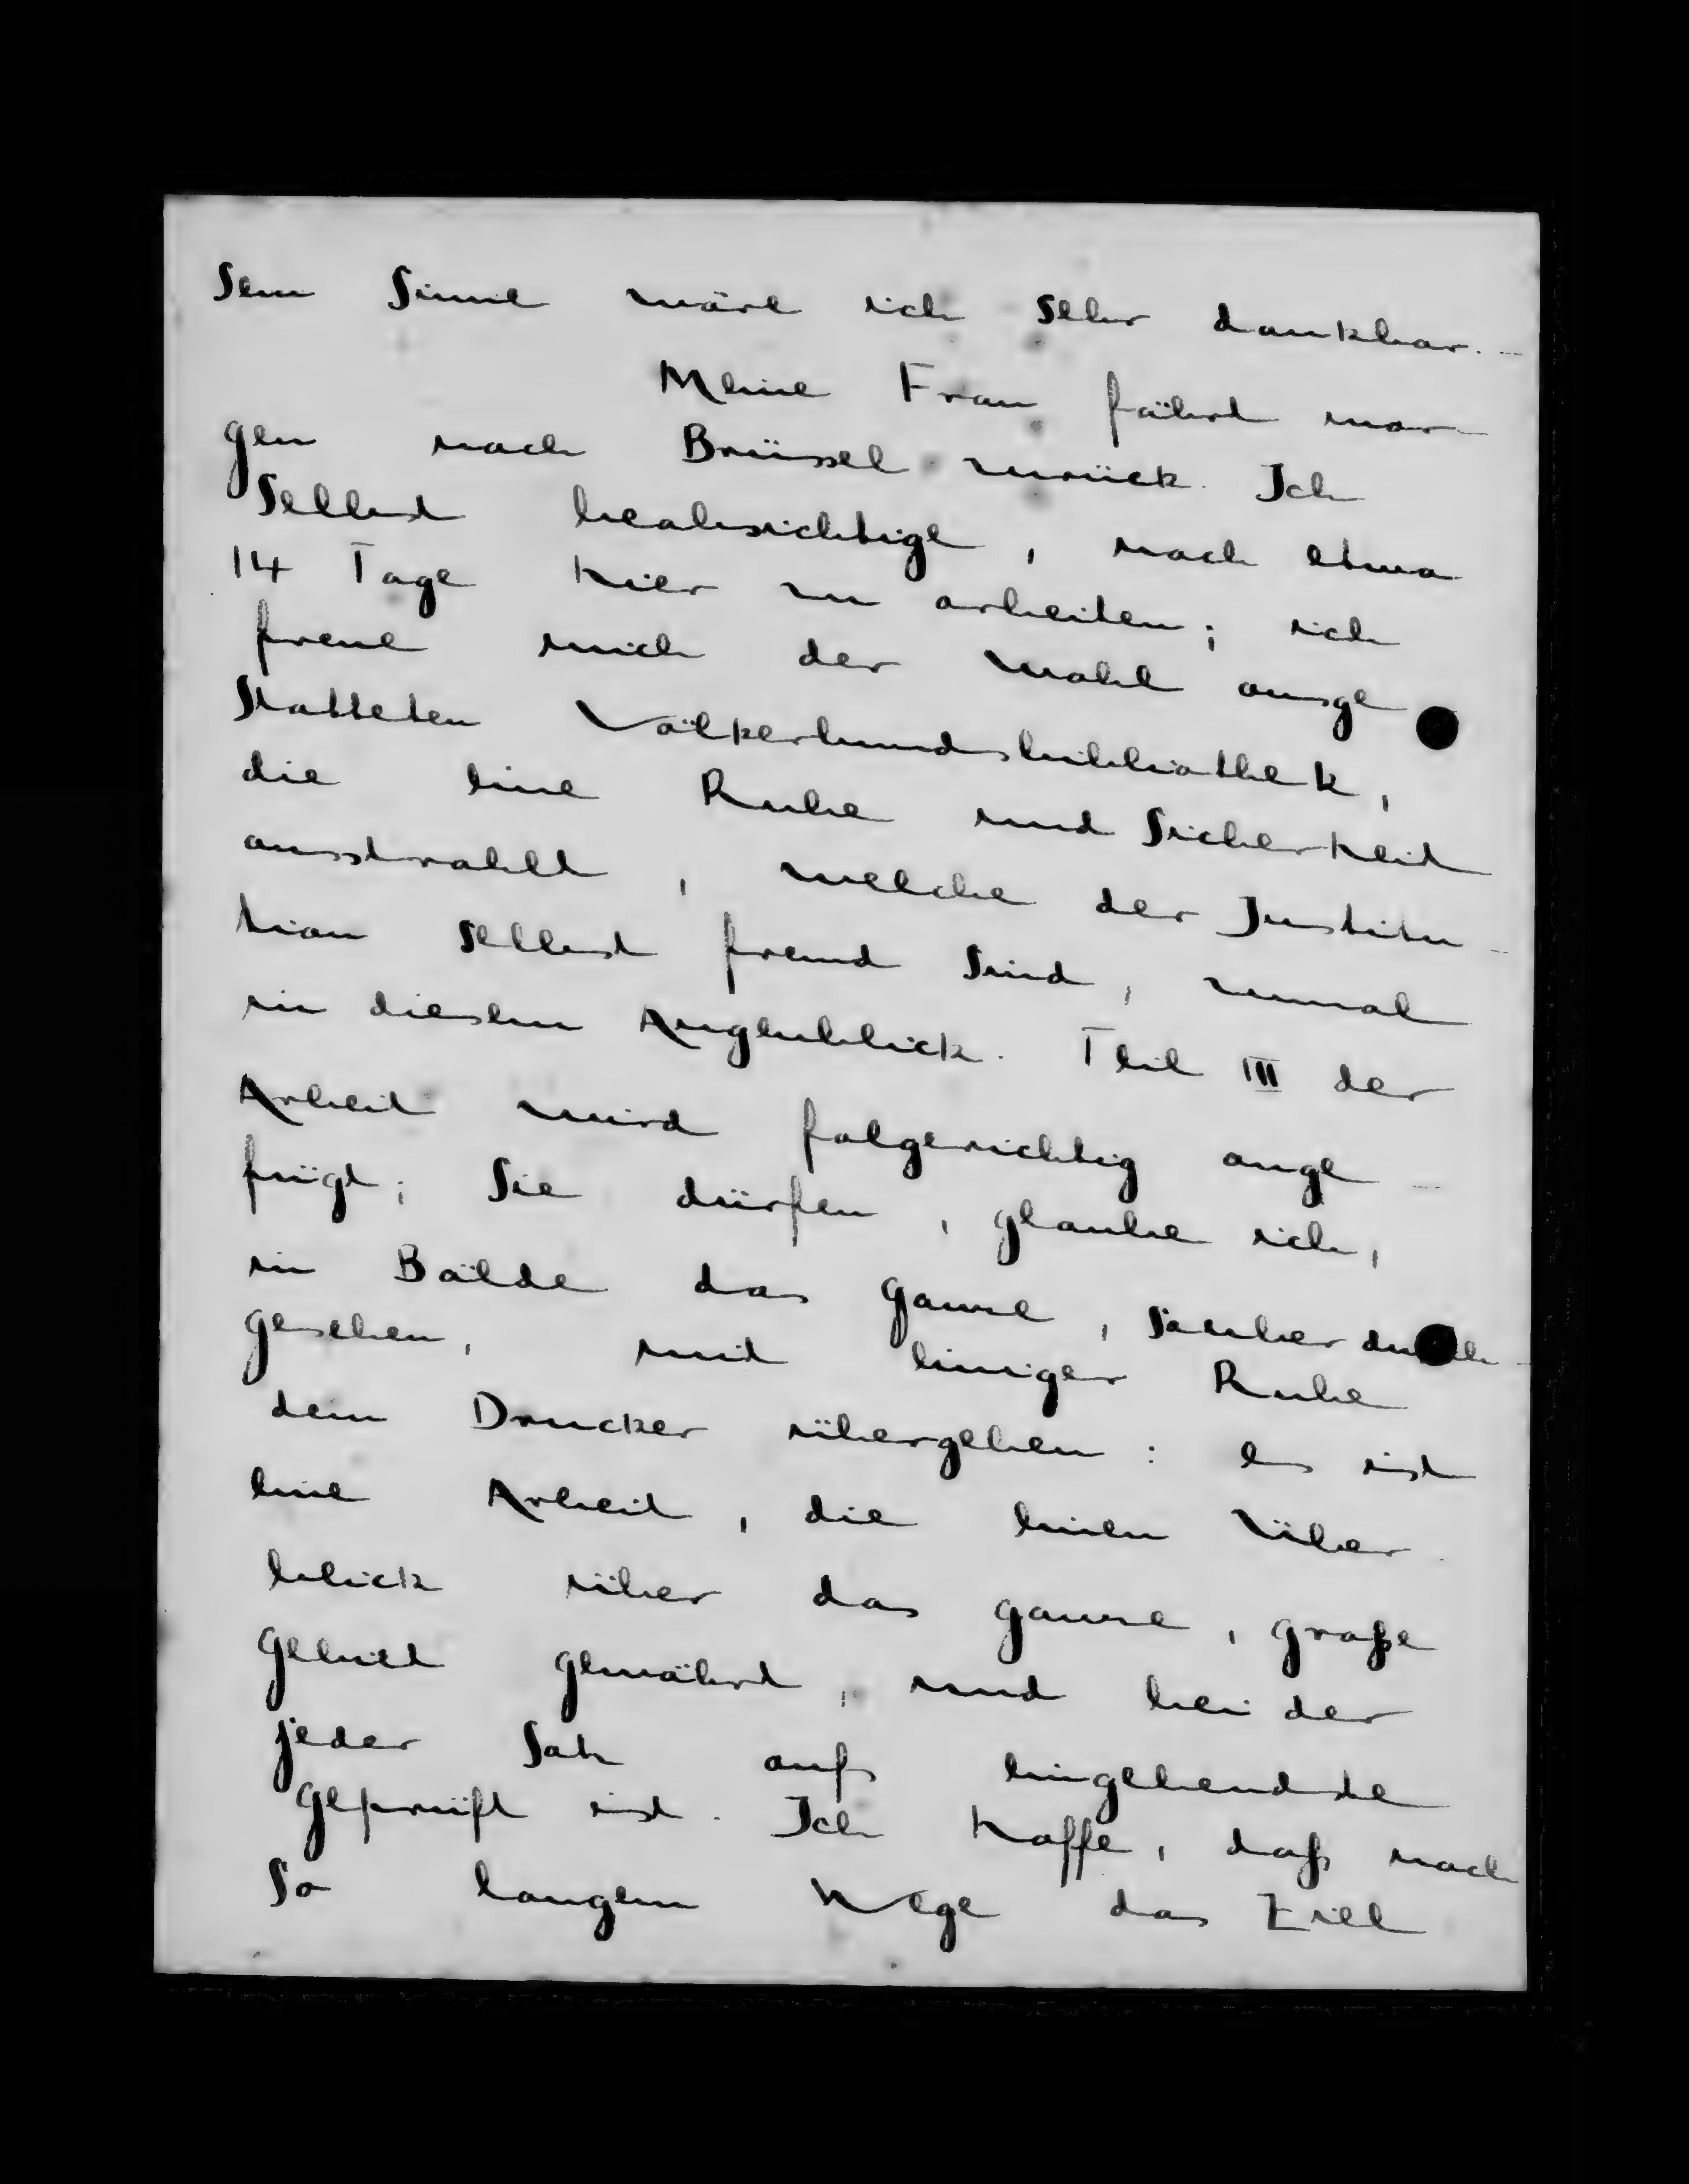 sem Sinne wäre ich sehr dankbar. -
Meine Frau fährt mor-
gen nach Brüssel zurück. Ich
selbst beabsichtige, noch etwa
14 Tage hier zu arbeiten; ich
freue mich der wohl ausge
statteten Völkerbundsbibliothek,
die eine Ruhe und Sicherheit
ausstrahlt, welche der Institu-
tion selbst fremd sind, zumal
in diesem Augenblick. Theil III der
Arbeit wird folgerichtig ange-
fügt; Sie dürfen, glaube ich,
in Bälde das ganze, sauber durch-
gesehen, mit einiger Ruhe
dem Drucker übergeben: es ist
eine Arbeit, die einen Über-
blick über das ganze, große
Gebiet gewährt, und bei der
jeder Satz aufs eingehendste
geprüft ist. Ich hoffe, daß nach
so langem Wege das Ziel